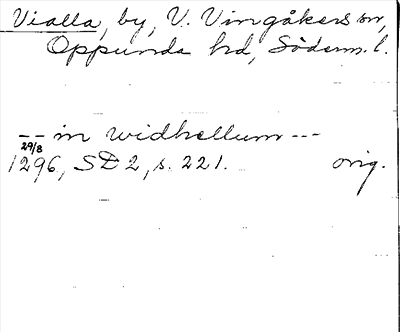 Vialla, by, V. Vingåkers sn,
Oppunda hd, Söderm. l.
-- in widhellum ---
29/8
1296, SD 2, s. 221. orig.